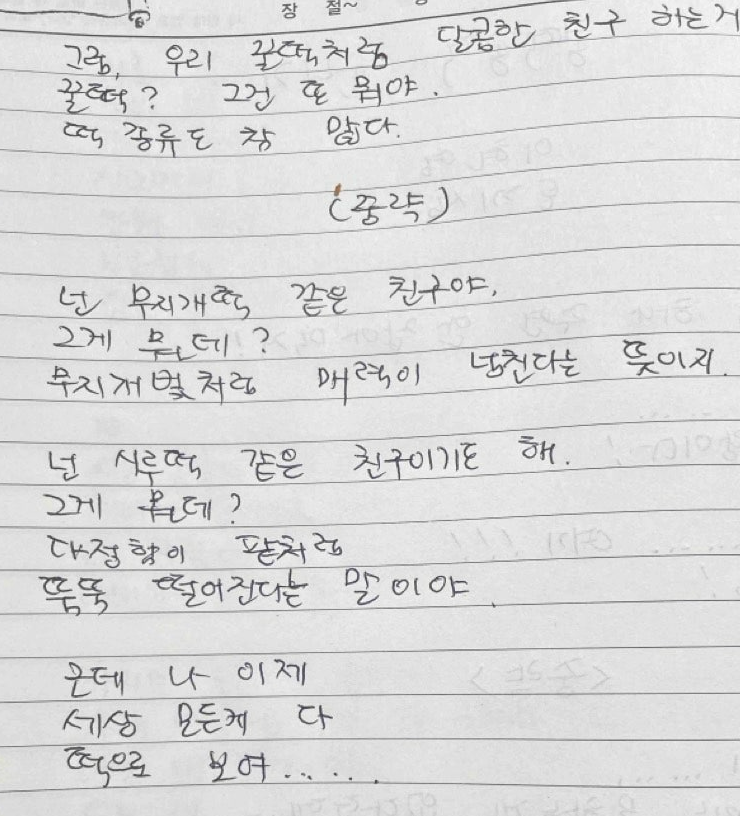 장 절~
그럼, 우리 꿀떡처럼 달콤한 친구 하는거
꿀떡? 그건 또 뭐야.
떡 종류도 참 많다.
(중략)
넌 무지개떡 같은 친구야.
그게 뭔데?
무지개빛처럼 매력이 넘친다는 뜻이지.
넌 시루떡 같은 친구이기도 해.
그게 뭔데?
다정함이 팥처럼
뚝뚝 떨어진다는 말이야.
근데 나 이제
세상 모든게 다
떡으로 보여......